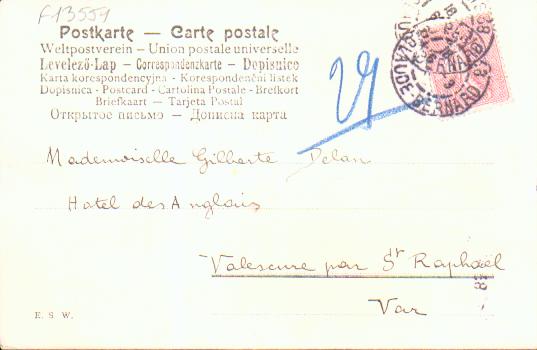 F13559
Postkarte — Carte postale
Weltpostverein - Union postale universelle
Levelező-Lap - Correspondenzkarte - Dopisnice
Karta korespondencyjna - Korespondenční lístek
Dopisnica - Postcard - Cartolina Postale - Brefkort
Briefkaart — Tarjeta Postal
Открытое письмо — Дописна карта
CLAUDE-BERNARD
Mademoiselle Gilberte Delan
Hotel des Anglais
Valescure par St Raphael
Var
E. S. W.